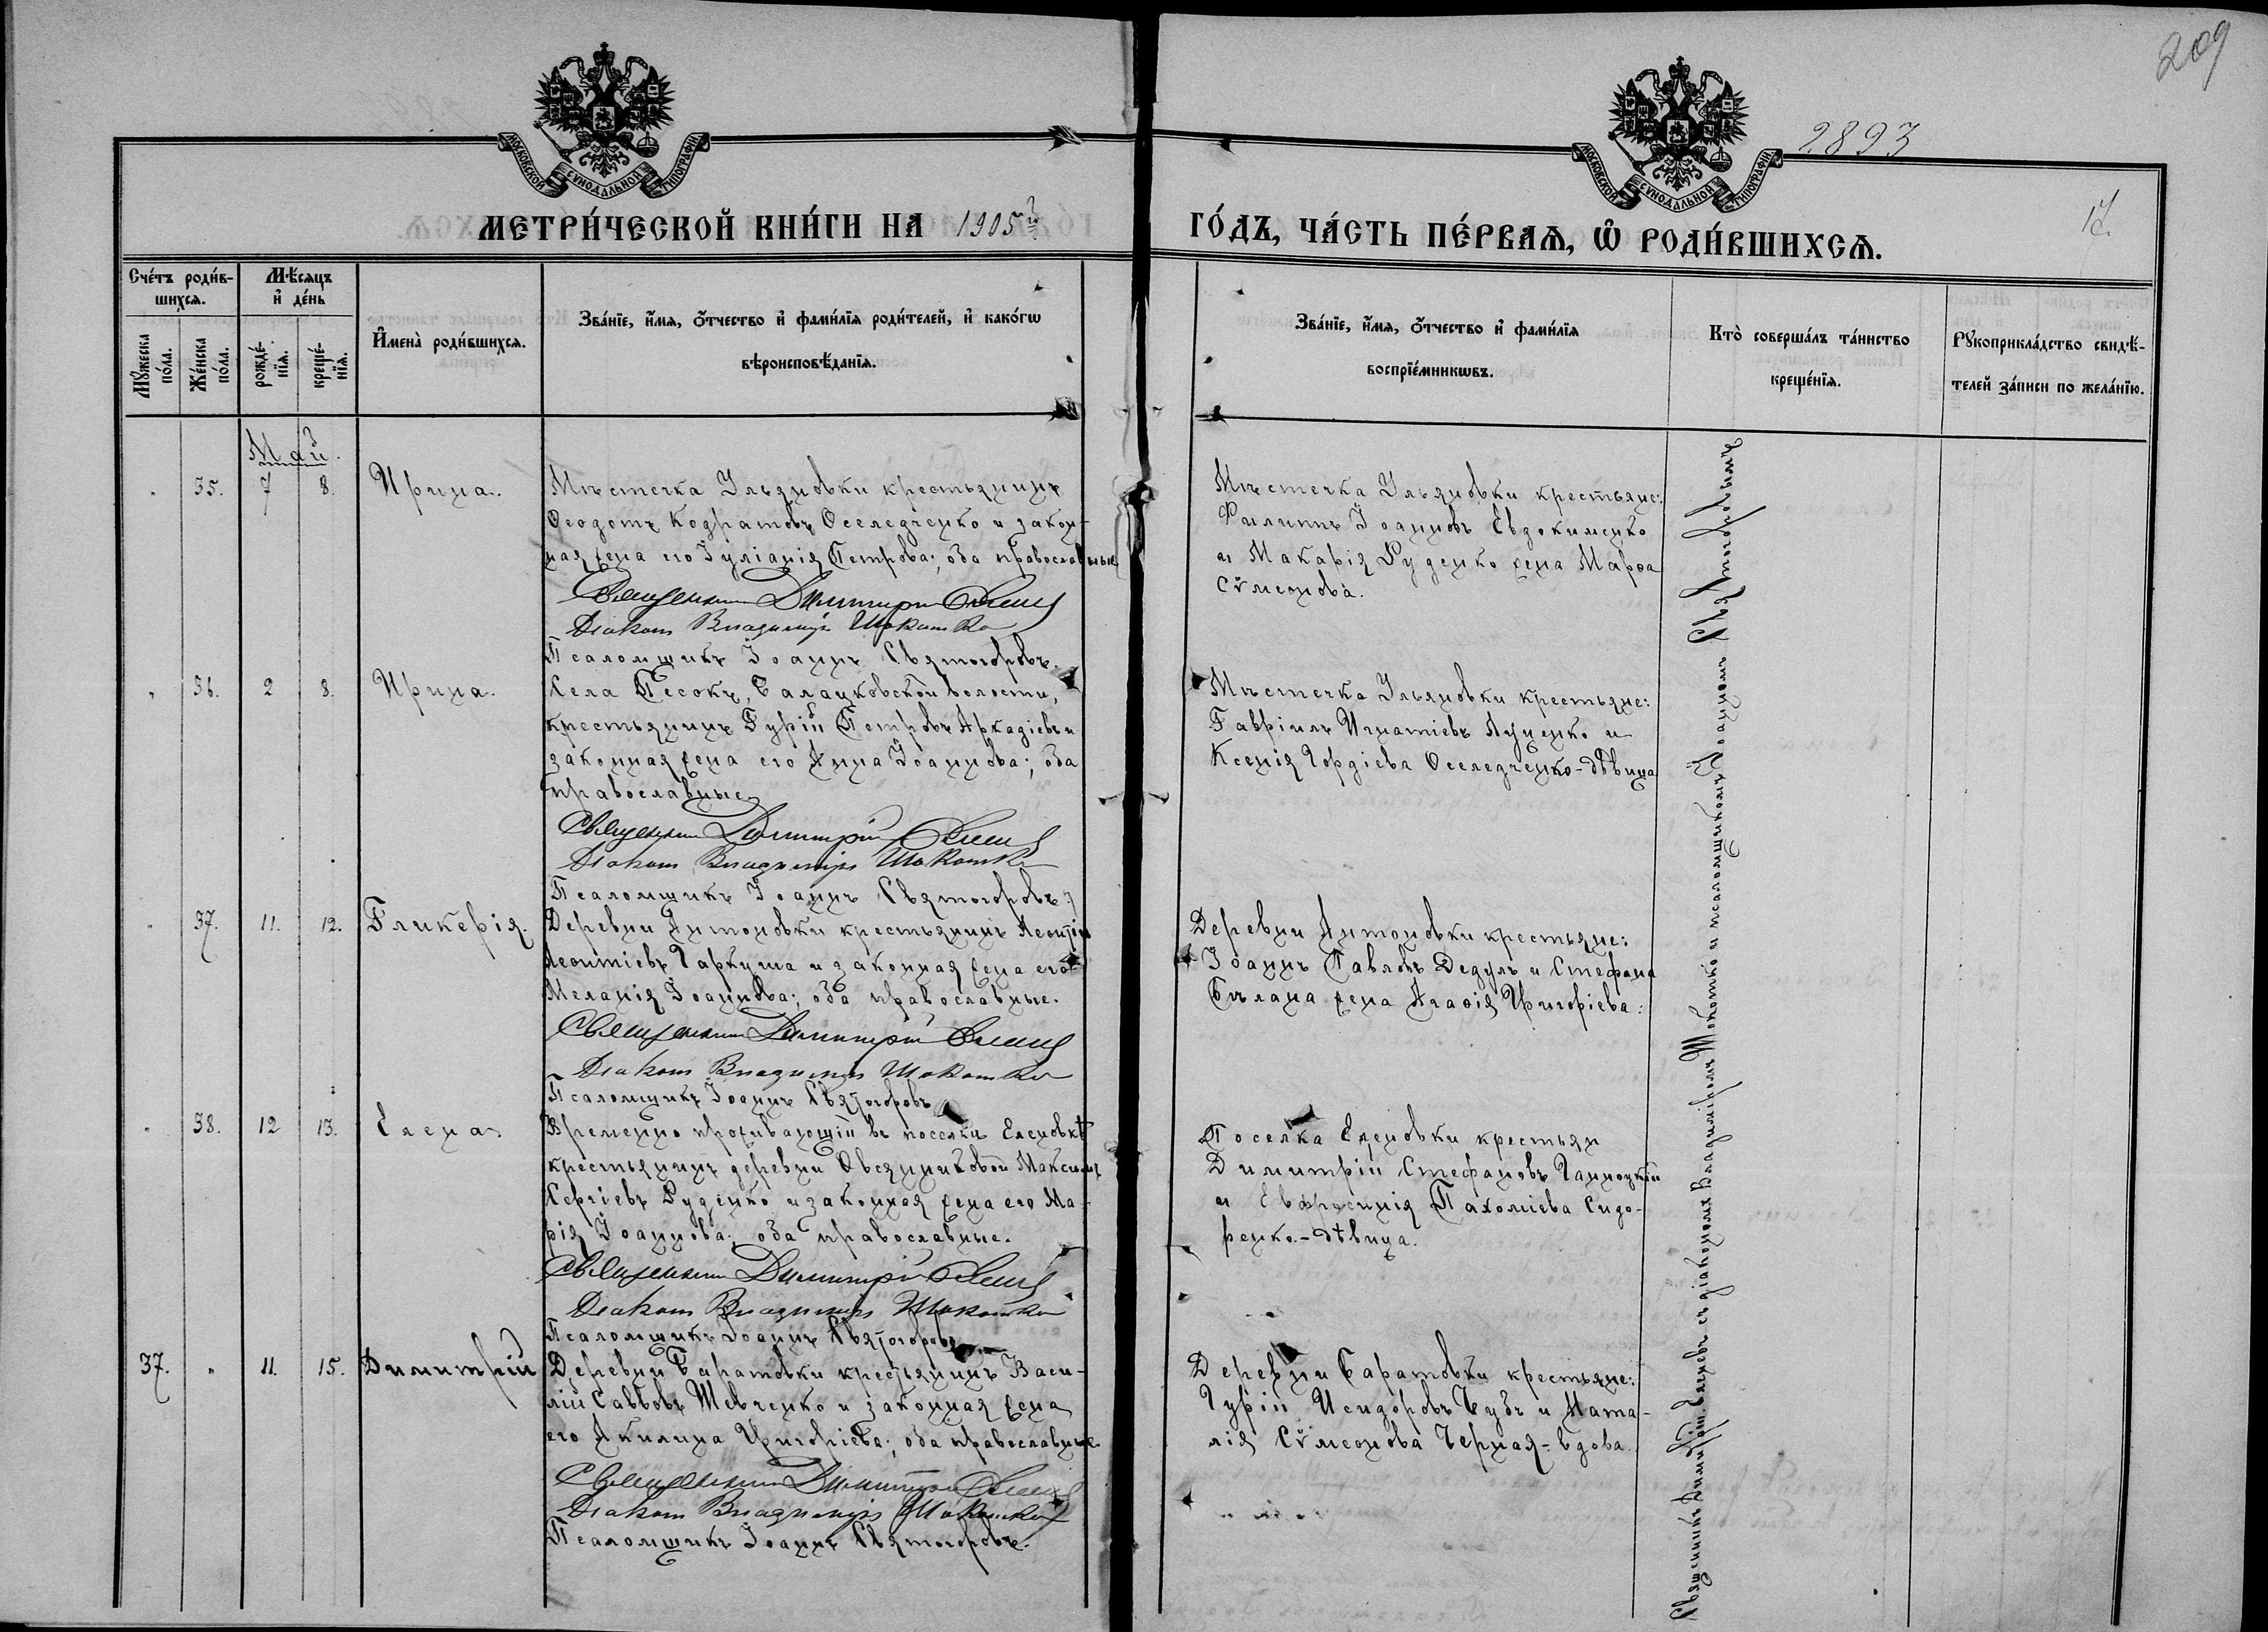 209
2893
17.
МОСКОВСКОЙ СѴНОДАЛЬНОЙ ТИПОГРАФІИ
МОСКОВСКОЙ СѴНОДАЛЬНОЙ ТИПОГРАФІИ
МЕТРИ́ЧЕСКОЙ КНИ́ГИ НА 1905й ГО́ДЪ, ЧА́СТЬ ПЕ́РВАѦ, Ѡ РОДИ́ВШИХСѦ.
Сче́тъ роди́в-
шихсѧ.
Мѣ́сяцъ
и де́нь
Мꙋ́жеска
по́ла.
Же́нска
по́ла.
рожде́-
нїѧ.
креще́-
нїѧ.
Имена̀ роди́вшихсѧ.
Зва́нїе, и́мѧ, о́тчество и фами́лїѧ роди́телей, и како́гѡ
вѣроисповѣ́данїѧ.
Зва́нїе, и́мѧ, о́тчество и фами́лїѧ
воспрїе́мникѡвъ.
Кто̀ соверша́лъ та́инство
креще́нїѧ.
Рꙋкоприкла́дство свидѣ́-
телей за́писи по жела́нїю.
Май.
" 35. 7 8. Ирина.
Мѣстечка Ульяновки крестьянинъ
Ѳеодотъ Кодратовъ Оселедченко и закон-
ная жена его Іуліанія Петрова; оба православные
Священникъ Димитрій
Діаконъ Владиміръ Шокотко
Псаломщикъ Іоаннъ Святогоровъ.
Мѣстечка Ульяновки крестьяне:
Филиппъ Іоанновъ Евдокименко
и Макарія Руденко жена Марѳа
Сѵмеонова.
" 36. 2 8. Ирина.
Села Песокъ, Балацковской волости,
крестьянинъ Гурій Петровъ Аркадіевъ и
законная жена его Анна Іоаннова; оба
православные
Священникъ Димитрій
Діаконъ Владиміръ Шокотко
Псаломщикъ Іоаннъ Святогоровъ
Мѣстечка Ульяновки крестьяне:
Гавріилъ Игнатіевъ Луценко и
Ксенія Гордіева Оселедченко-дѣвица
" 37. 11. 12. Гликерія.
Деревни Антоновки крестьянинъ Леонтій
Леонтіевъ Гаркуша и законная жена его
Меланія Іоаннова; оба православные.
Священникъ Димитрій
Діаконъ Владиміръ Шокотко
Псаломщикъ Іоаннъ Святогоровъ
Деревни Антоновки крестьяне:
Іоаннъ Павловъ Дедулъ и Стефана
Бѣлана жена Агаѳія Григоріева.
" 38. 12 13. Елена
Временно проживающій въ поселкѣ Еленовкѣ
крестьянинъ деревни Овсянниковой Максимъ
Сергіевъ Руденко и законная жена его Ма-
рія Іоаннова; оба православные.
Священникъ Димитрій
Діаконъ Владиміръ Шокотко
Псаломщикъ Іоаннъ Святогоровъ
Поселка Еленовки крестьян
Димитрій Стефановъ
и Евфросинія Пахоміева Сидо-
ренко-дѣвица.
37. " 11. 15. Димитрій
Деревни Баратовки крестьянинъ Васи-
лій Саввовъ Шевченко и законная жена
его Акилина Григоріева; оба православные.
Священникъ Димитрій
Діаконъ Владиміръ Шокотко
Псаломщикъ Іоаннъ Святогоровъ.
Деревни Баратовки крестьяне:
Гурій Исидоровъ Чубъ и Ната-
лія Сѵмеонова Черная-вдова.
Священникъ Димитрій съ діакономъ Владиміромъ Шокотко и псаломщикомъ Іоанномъ Святогоровымъ